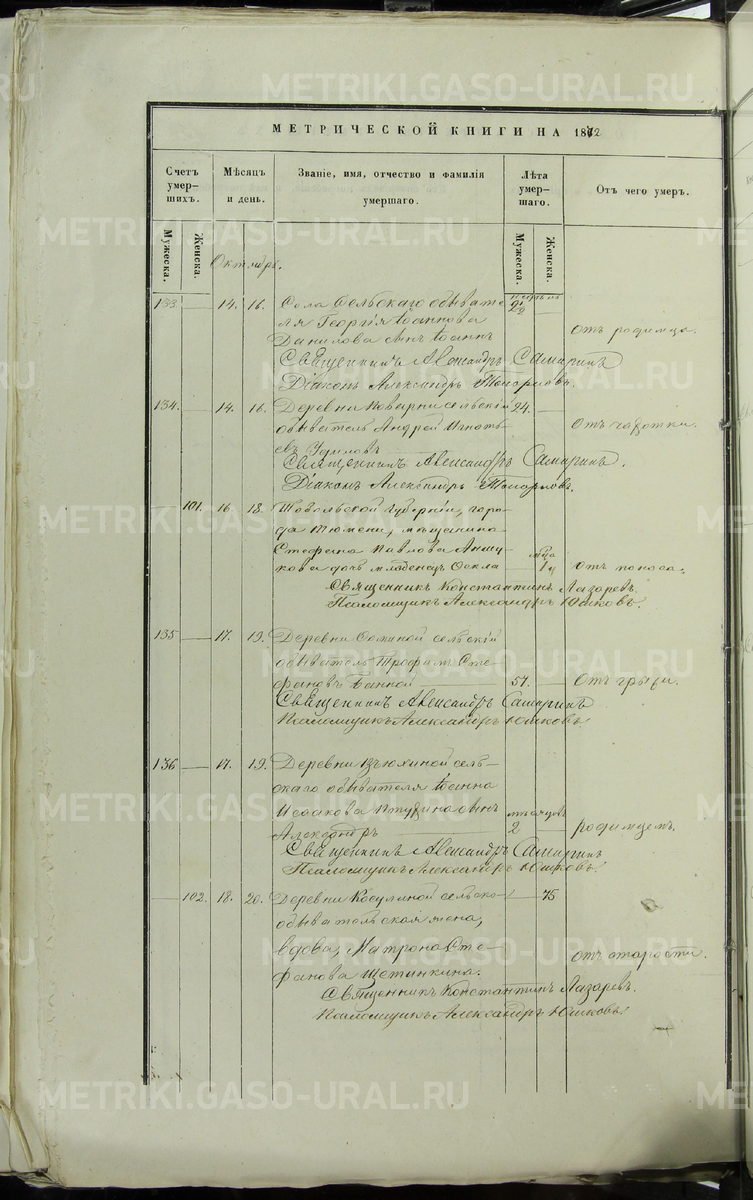 METRIKI.GASO-URAL.RU
МЕТРИЧЕСКОЙ КНИГИ НА 1872
Счетъ умер- шихъ.
Мѣсяцъ и день.
Званіе, имя, отчество и фамилія умершаго.
Лѣта умер- шаго.
Отъ чего умеръ.
Мужеска. Женска.
Мужеска. Женска.
Октябрь.
133 14. 16. Села Сельскаго обывате-
ля Георгія Іоаннова
Данилова сынъ Іоаннъ отъ родимца.
Священникъ Александръ Самаринъ
Діаконъ Александръ
134. 14. 16. Деревни сельскій 24.
обыватель Андрей Игнать-
евъ отъ чахотки.
Священникъ Александръ Самаринъ.
Діаконъ Александръ
101. 16. 18. Тобольской Губерніи, горо-
да Тюмени, мѣщанина
Стефана Павлова
дочь младенецъ Фекла 1 отъ поноса.
Священникъ Константинъ Лазаревъ
Псаломщикъ Александръ Юшковъ.
135 17. 19. Деревни сельскій
обыватель Трофимъ Сте-
фановъ 57. отъ грыжи.
Священникъ Александръ Самаринъ
Псаломщикъ Александръ Юшковъ.
136 17. 19. Деревни сель-
скаго обывателя Іоанна
Исаакова сынъ
Александръ 2 родимцемъ.
Священникъ Александръ Самаринъ
Псаломщикъ Александръ Юшковъ.
102. 18. 20. Деревни Косулиной сельско- 75
обывательская жена,
вдова, Матрона Сте-
фанова Щетинкина. отъ старости.
Священникъ Константинъ Лазаревъ.
Псаломщикъ Александръ Юшковъ.